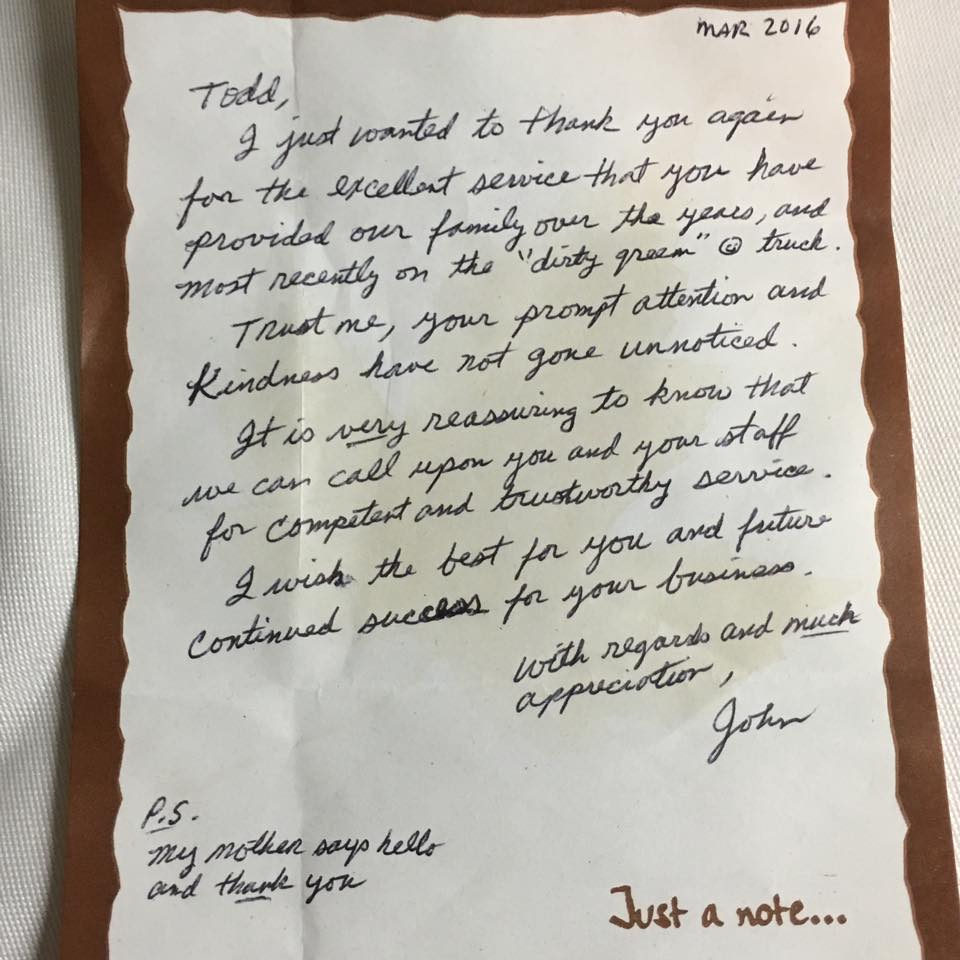 MAR 2016
Todd,
I just wanted to thank you again
for the excellent service that you have
provided our family over the years, and
most recently on the "dirty green" ☺ truck.
Trust me, your prompt attention and
Kindness have not gone unnoticed.
It is very reassuring to know that
we can call upon you and your staff
for competent and trustworthy service.
I wish the best for you and future
continued success for your business.
With regards and much
appreciation,
John
P.S.
My mother says hello
and thank you
Just a note...